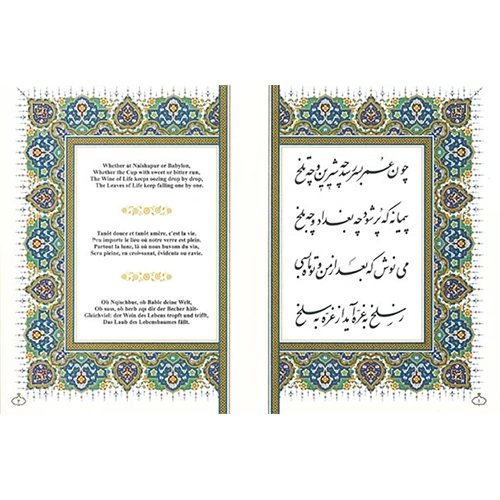 Whether at Naishapur or Babylon,
Whether the Cup with sweet or bitter run,
The Wine of Life keeps oozing drop by drop,
The Leaves of Life keep falling one by one.
Tanôt douce et tanôt amère, c'est la vie.
Peu importe le lieu où notre verre est plein.
Partout la lune, là où nous buvons du vin,
Sera pleine, en croissant, évidente ou ravie.
Ob Neischbur, ob Bable deine Welt,
Ob suss, ob herb der Becher hält-
Gleichviel: der Wein des Lebens tropft und trifft,
Das Laub des Lebensbaumes fällt.
چون عمر بسر رسد چه شیرین و چه تلخ
پیمانه که پر شود چه بغداد و چه بلخ
می نوش که بعد از من و تو ماه بسی
از سلخ به غره آید از غره به سلخ